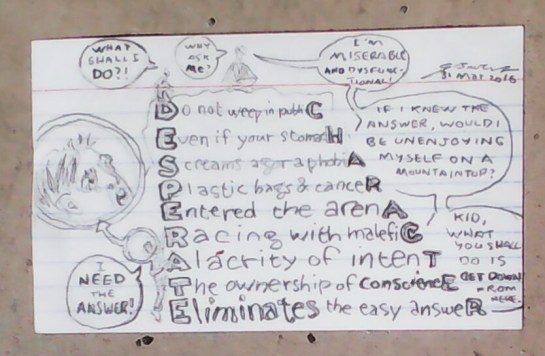 WHAT
SHALL I
DO?!
WHY
ASK
ME?
I'M
MISERABLE
AND DYSFUNC-
TIONAL!
31 MAR 2016
Do not weep in publiC
Even if your stomacH
Screams agoraphobiA
Plastic bags & canceR
Entered the arenA
Racing with malefiC
Alacrity of intenT
The ownership of consciencE
Eliminates the easy answeR
IF I KNEW THE
ANSWER, WOULD I
BE UNENJOYING
MYSELF ON A
MOUNTAINTOP?
KID,
WHAT
YOU SHALL
DO IS
GET DOWN
FROM
HERE.
I
NEED
THE
ANSWER!